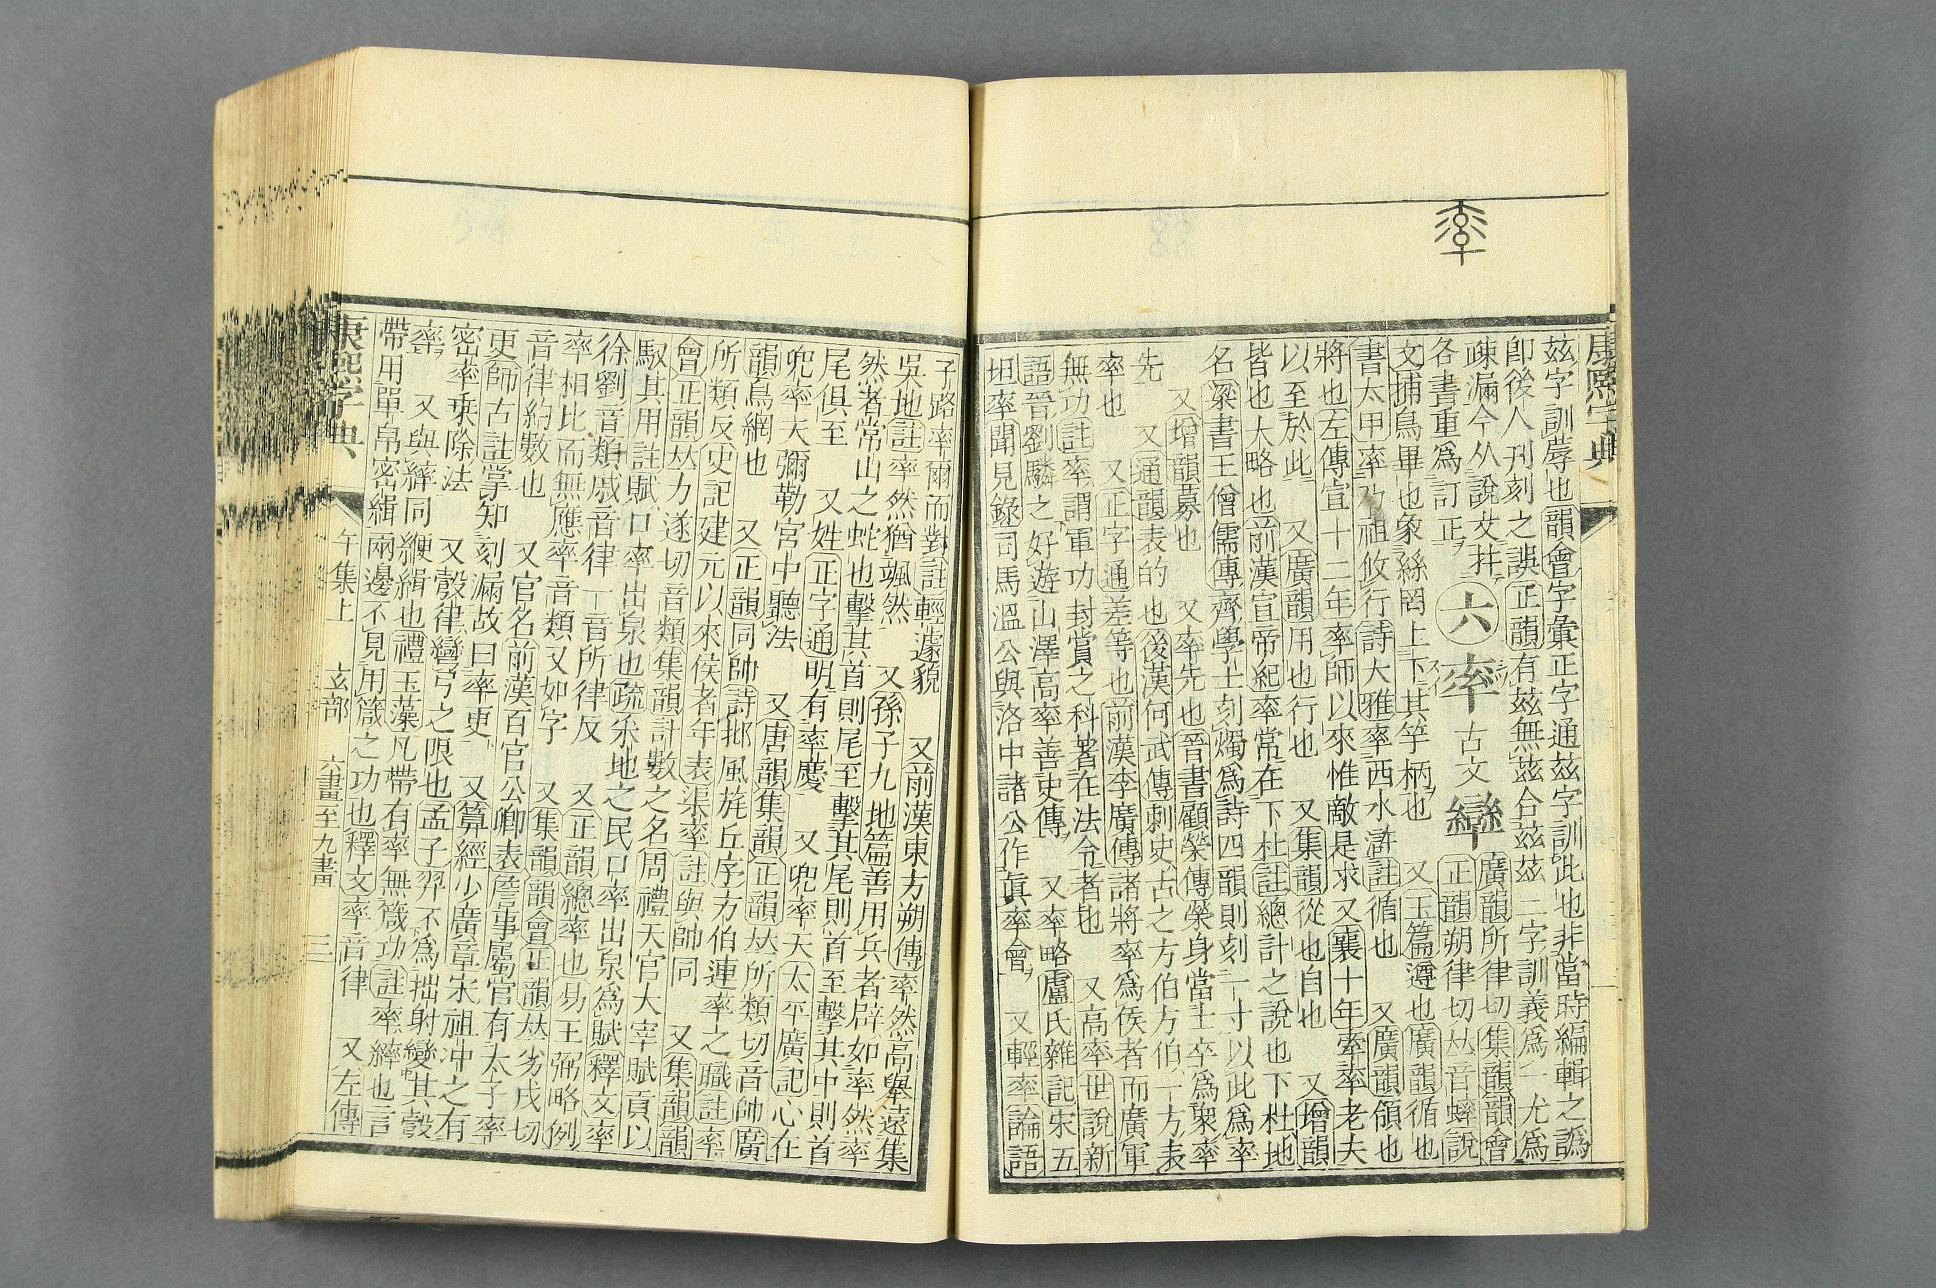 康熙字典
茲字訓蓐也韻會字彙正字通茲字訓此也非當時編輯之譌
卽後人刊刻之誤正韻有玆無茲合玆茲二字訓義爲一尤爲
疎漏今从說文幷
各書重爲訂正
六
率
古文
𤕠
廣韻所律切集韻韻會
正韻朔律切𠀤音蟀說
文捕鳥畢也象絲罔上下其竿柄也 又玉篇遵也廣韻循也
書太甲率乃祖攸行詩大雅率西水滸註循也 又廣韻領也
將也左傳宣十二年率師以來惟敵是求又襄十年牽率老夫
以至於此 又廣韻用也行也 又集韻從也自也 又增韻
皆也大略也前漢宣帝紀率常在下杜註總計之說也下杜地
名梁書王僧孺傳齊學士刻燭爲詩四韻則刻一寸以此爲率
又增韻募也 又率先也晉書顧榮傳榮身當士卒爲衆率
先 又通韻表的也後漢何武傳刺史古之方伯方伯一方表
率也 又正字通差等也前漢李廣傳諸將率爲侯者而廣軍
無功註率謂軍功封賞之科著在法令者也 又高率世說新
語晉劉驎之好遊山澤高率善史傳 又率略盧氏雜記宋五
坦率聞見錄司馬溫公與洛中諸公作眞率會 又輕率論語
子路率爾而對註輕遽貌 又前漢東方朔傳率然高舉遠集
吳地註率然猶颯然 又孫子九地篇善用兵者辟如率然率
然者常山之蛇也擊其首則尾至擊其尾則首至擊其中則首
尾俱至 又姓正字通明有率慶 又兜率天太平廣記心在
兜率天彌勒宮中聽法 又唐韻集韻正韻𠀤所類切音帥廣
韻鳥網也 又正韻同帥詩邶風旄丘序方伯連率之職註率
所類反史記建元以來侯者年表渠率註與帥同 又集韻韻
會正韻𠀤力遂切音類集韻計數之名周禮天官大宰賦貢以
馭其用註賦口率出泉也疏采地之民口率出泉爲賦釋文率
徐劉音類戚音律一音所律反 又正韻總率也易王弼略例
率相比而無應率音類又如字 又集韻韻會正韻𠀤劣戌切
音律約數也 又官名前漢百官公卿表詹事屬官有太子率
更師古註掌知刻漏故曰率更 又算經少廣章宋祖沖之有
密率乗除法 又彀律彎弓之限也孟子羿不爲拙射變其彀
率 又與繂同綆緝也禮玉藻凡帶有率無箴功註率繂也言
帶用單帛密緝兩邊不見用箴之功也釋文率音律 又左傳
康熙字典 午集上 玄部 六畫至九畫 三